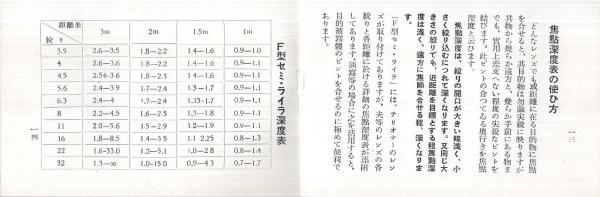 焦點深度表の使ひ方
どんなレンズでも或距離に在る目的物に焦點
を合せると、其目的物は勿論尖鋭に映りますが
其物から幾らか遠方と、幾らか手前にある物ま
でも、實用上差支へない程度の尖鋭なピントを
結びます。此ピントの合つてゐる奥行きを焦點
深度と云ひます。
焦點深度は、絞りの開口が大きい程淺く、小
さく絞り込むにつれて深くなります。又同じ大
きさの絞りでも、近距離を目標とする程焦點深
度は淺く、遠方に焦點を合せる程、深くなりま
す。
「F型セミ・ライラ」には、テリオナーのレン
ズが取り付けてありますが、夫等のレンズの各
絞りと各距離に於ける詳細の焦點深度表が添附
してあります。
目的被寫體のピントを合せるのに極めて便利で
あります。
一三
F型セミ・ライラ深度表
距離米 3m 2m 1.5m 1m
絞り
3.5 2.6—3.5 1.8—2.2 1.4—1.6 0.9—1.0
4 2.6—3.5 1.8—2.2 1.4—1.6 0.9—1.1
4.5 2.54-3.6 1.8—2.3 1.4—1.6 0.9—1.1
5.6 2.4—3.9 1.7—2.4 1.3—1.6 0.9—1.1
6.3 2.4—4 1.7—2.4 1.33-1.7 0.9—1.1
8 2.2—4.5 1.6—2.5 1.3—1.8 0.9—1.1
11 2.0—5.6 1.5—2.9 1.2—1.9 0.9—1.1
16 1.8—8.5 1.4—3.5 1.1 2.25 0.8—1.3
22 1.6-33.0 1.2—5.1 1.0—2.8 0.8—1.4
32 1.3—∞ 1.0-15.0 0.9—4.3 0.7—1.7
一四